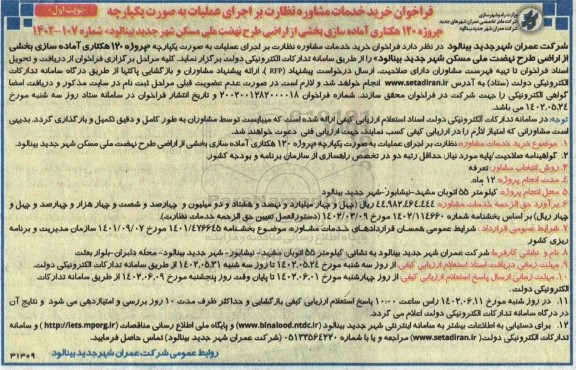 نوبت اول
فراخوان خرید خدمات مشاوره نظارت بر اجرای عملیات به صورت یکپارچه
«پروژه ۱۲۰ هکتاری آماده سازی بخشی از اراضی طرح نهضت ملی مسکن شهر جدید بینالود» شماره ۱۰۷-۱۴۰۲
وزارت راه و شهرسازی
شرکت عمران شهر جدید بینالود
شرکت عمران شهر جدید بینالود در نظر دارد فراخوان خرید خدمات مشاوره نظارت بر اجرای عملیات به صورت یکپارچه «پروژه ۱۲۰ هکتاری آماده سازی بخشی
از اراضی طرح نهضت ملی مسکن شهر جدید بینالود» را از طریق سامانه تدارکات الکترونیکی دولت برگزار نماید. کلیه مراحل برگزاری فراخوان از دریافت و تحویل
اسناد فراخوان تا تهیه فهرست مشاوران دارای صلاحیت، ارسال درخواست پیشنهاد (RFP)، ارائه پیشنهاد مشاوران و بازگشایی پاکتها از طریق درگاه سامانه تدارکات
الکترونیکی دولت (ستاد) به آدرس www.setadiran.ir انجام خواهد شد و لازم است در صورت عدم عضویت قبلی مراحل ثبت نام در سایت مذکور و دریافت امضا
گواهی الکترونیکی را جهت شرکت در فراخوان محقق سازند. شماره فراخوان ۲۰۰۲۰۰۱۲۸۲۰۰۰۰۱۸ و تاریخ انتشار فراخوان در سامانه ستاد روز سه شنبه مورخ
۱۴۰۲.۰۵.۲۴ می باشد.
توجه: در سامانه تدارکات الکترونیکی دولت اسناد استعلام ارزیابی کیفی ارائه شده است که میبایست توسط مشاوران به طور کامل و دقیق تکمیل و بارگذاری گردد. بدیهی
است مشاورانی که امتیاز لازم را در ارزیابی کیفی کسب نمایند، جهت ارزیابی فنی دعوت خواهند شد.
۱. موضوع خرید خدمات مشاوره: نظارت بر اجرای عملیات به صورت یکپارچه «پروژه ۱۲۰ هکتاری آماده سازی بخشی از اراضی طرح نهضت ملی مسکن شهر جدید بینالود.
۲. گواهینامه صلاحیت /پایه مورد نیاز: حداقل رتبه دو در تخصص راهسازی از سازمان برنامه و بودجه کشور.
۳. روش انتخاب مشاور: تعرفه
۴. مدت انجام پروژه: ۱۲ ماه.
۵. محل انجام پروژه: کیلومتر ۵۵ اتوبان مشهد-نیشابور-شهر جدید بینالود
۶. برآورد حق الزحمه خدمات مشاوره: ۴۴.۹۸۲.۴۶۴.۴۴۴ ریال (چهل و چهار میلیارد و نهصد و هشتاد و دو میلیون و چهارصد و شصت و چهار هزار و چهارصد و چهل و
چهار ریال) بر اساس بخشنامه شماره ۱۴۰۲/۱۱۴۶۶۰ مورخ ۱۴۰۲/۰۳/۰۹ (دستورالعمل تعیین حق الزحمه خدمات نظارت).
۷. شرایط عمومی قرارداد: شرایط عمومی همسان قراردادهای خدمات مشاوره، موضوع بخشنامه ۱۴۰۱/۴۷۶۶۴۵ مورخ ۱۴۰۱/۰۹/۰۷ سازمان مدیریت و برنامه
ریزی کشور
۸. نام و نشانی کارفرما: شرکت عمران شهر جدید بینالود به نشانی: کیلومتر ۵۵ اتوبان مشهد- نیشابور- شهر جدید بینالود- محله دلبران-بلوار بعثت
۹. مهلت زمانی دریافت اسناد استعلام ارزیابی کیفی: از روز سه شنبه مورخ ۱۴۰۲.۰۵.۲۴ تا روز سه شنبه ۱۴۰۲.۰۵.۳۱ از طریق سامانه تدارکات الکترونیکی دولت.
۱۰. مهلت زمانی ارسال پاسخ استعلام ارزیابی کیفی: از روز چهارشنبه مورخ ۱۴۰۲.۰۶.۰۱ تا پایان وقت روز پنجشنبه مورخ ۱۴۰۲.۰۶.۰۹ از طریق سامانه تدارکات
الکترونیکی دولت.
۱۱. در روز شنبه مورخ ۱۴۰۲.۰۶.۱۱ راس ساعت ۱۰:۰۰ پاسخ استعلام ارزیابی کیفی بازگشایی و حداکثر ظرف مدت ۱۰ روز بررسی و امتیازدهی می شود و نتایج آن
در درگاه سامانه تدارکات الکترونیکی دولت اعلام می گردد.
۱۲. برای دستیابی به اطلاعات بیشتر به سامانه اینترنتی شهر جدید بینالود (www.binalood.ntdc.ir) و پایگاه ملی اطلاع رسانی مناقصات (http://iets.mporg.ir) و سامانه
تدارکات الکترونیکی دولت (www.setadiran.ir) مراجعه و یا با شماره ۰۵۱۳۳۵۶۴۲۲۰ (شرکت عمران شهر جدید بینالود) تماس حاصل فرمایید.
روابط عمومی شرکت عمران شهر جدید بینالود
۳۱۳۰۹